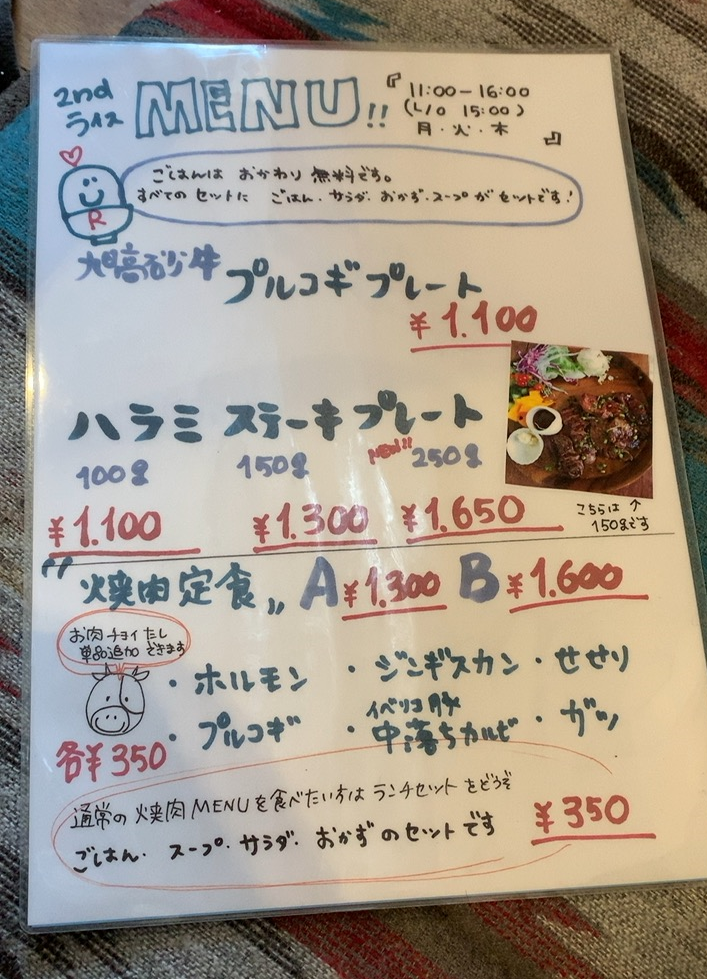 2nd
ライス
MENU!!
『11:00-16:00
(L/O 15:00)
月・火・木』
R
ごはんは おかわり 無料です。
すべての セットに ごはん・サラダ・おかず・スープが セットです!
大日高砂牛
プルコギプレート
¥1.100
ハラミ ステーキプレート
100g 150g NEW!! 250g
¥1.100 ¥1.300 ¥1.650
こちらは ↑
150gです
"焼肉定食" A ¥1.300 B ¥1.600
お肉チョイたし
単品追加 できます
・ホルモン ・ジンギスカン ・せせり
・プルコギ ・イベリコ豚 中落ちカルビ ・ガツ
各¥350
通常の 焼肉MENUを食べたい方は ランチセットをどうぞ
ごはん・スープ・サラダ・おかずのセットです
¥350